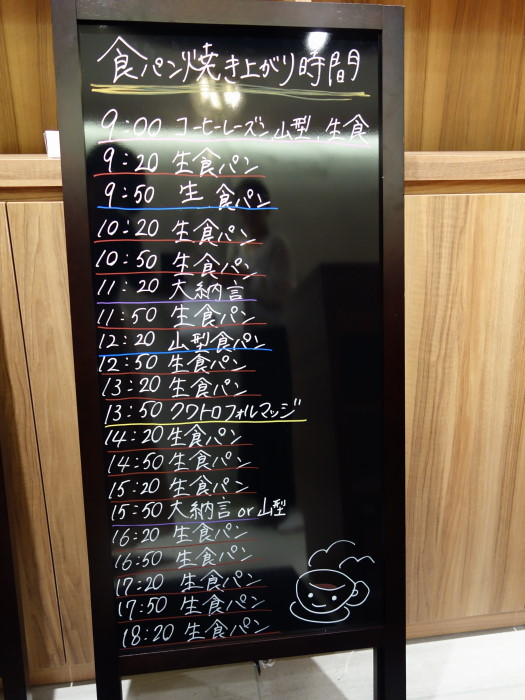 食パン焼き上がり時間
9:00 コーヒーレーズン,山型,生食
9:20 生食パン
9:50 生食パン
10:20 生食パン
10:50 生食パン
11:20 大納言
11:50 生食パン
12:20 山型食パン
12:50 生食パン
13:20 生食パン
13:50 クワトロフォルマッジ
14:20 生食パン
14:50 生食パン
15:20 生食パン
15:50 大納言 or 山型
16:20 生食パン
16:50 生食パン
17:20 生食パン
17:50 生食パン
18:20 生食パン